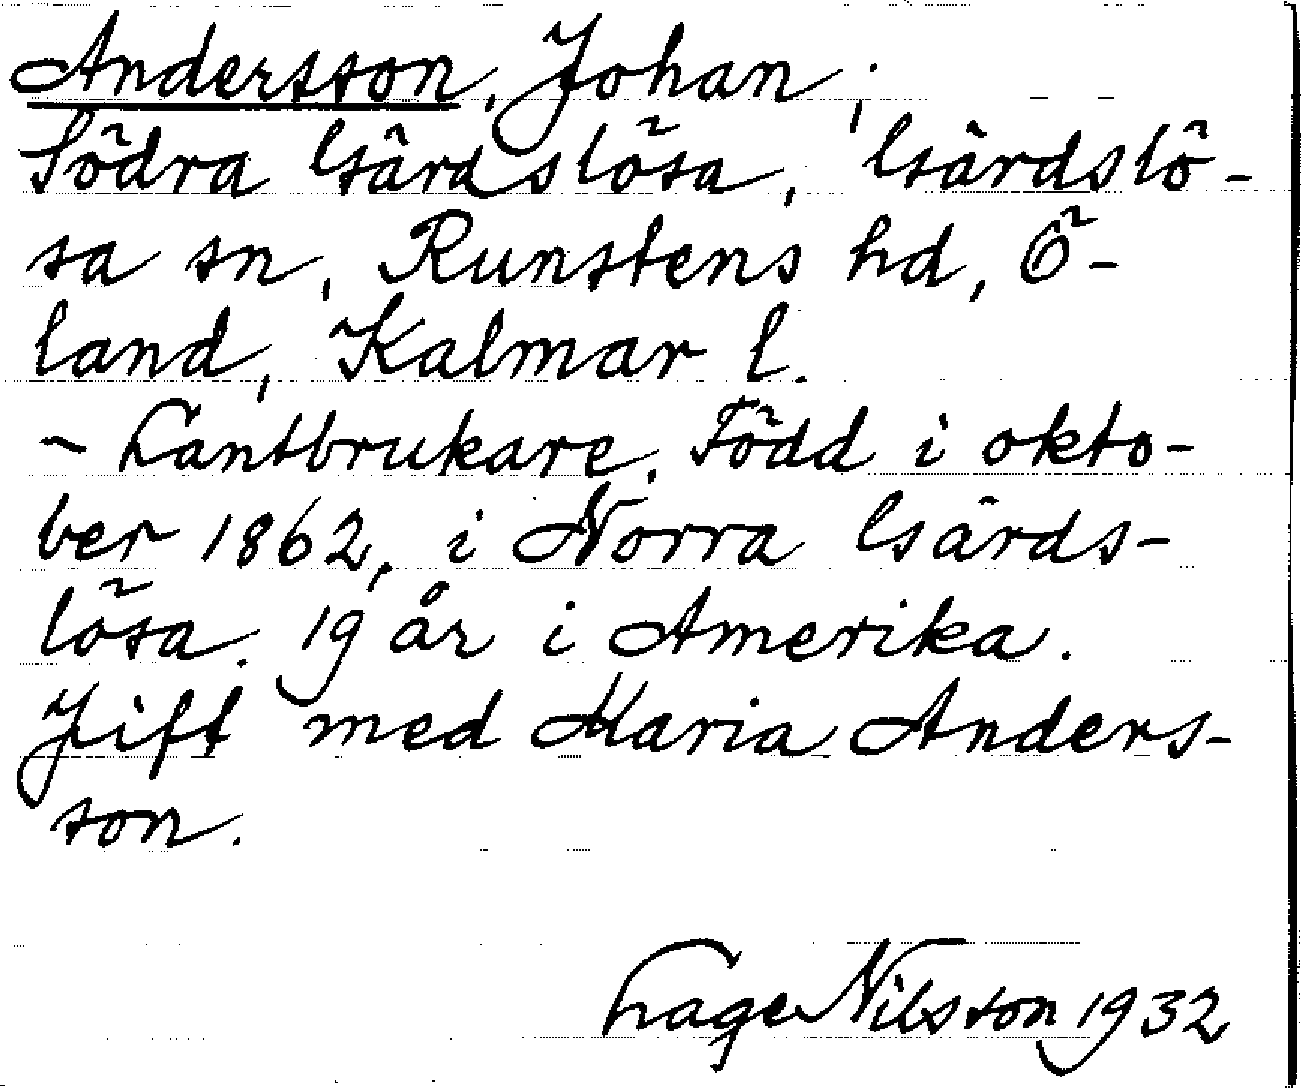 Andersson, Johan,
Södra Gärdslösa, Gärdslö-
sa sn, Runstens hd, Ö-
land, Kalmar l.
- Lantbrukare. Född i okto-
ber 1862, i Norra Gärds-
lösa. 19 år i Amerika.
Gift med Maria Anders-
son.
Lage Nilsson 1932